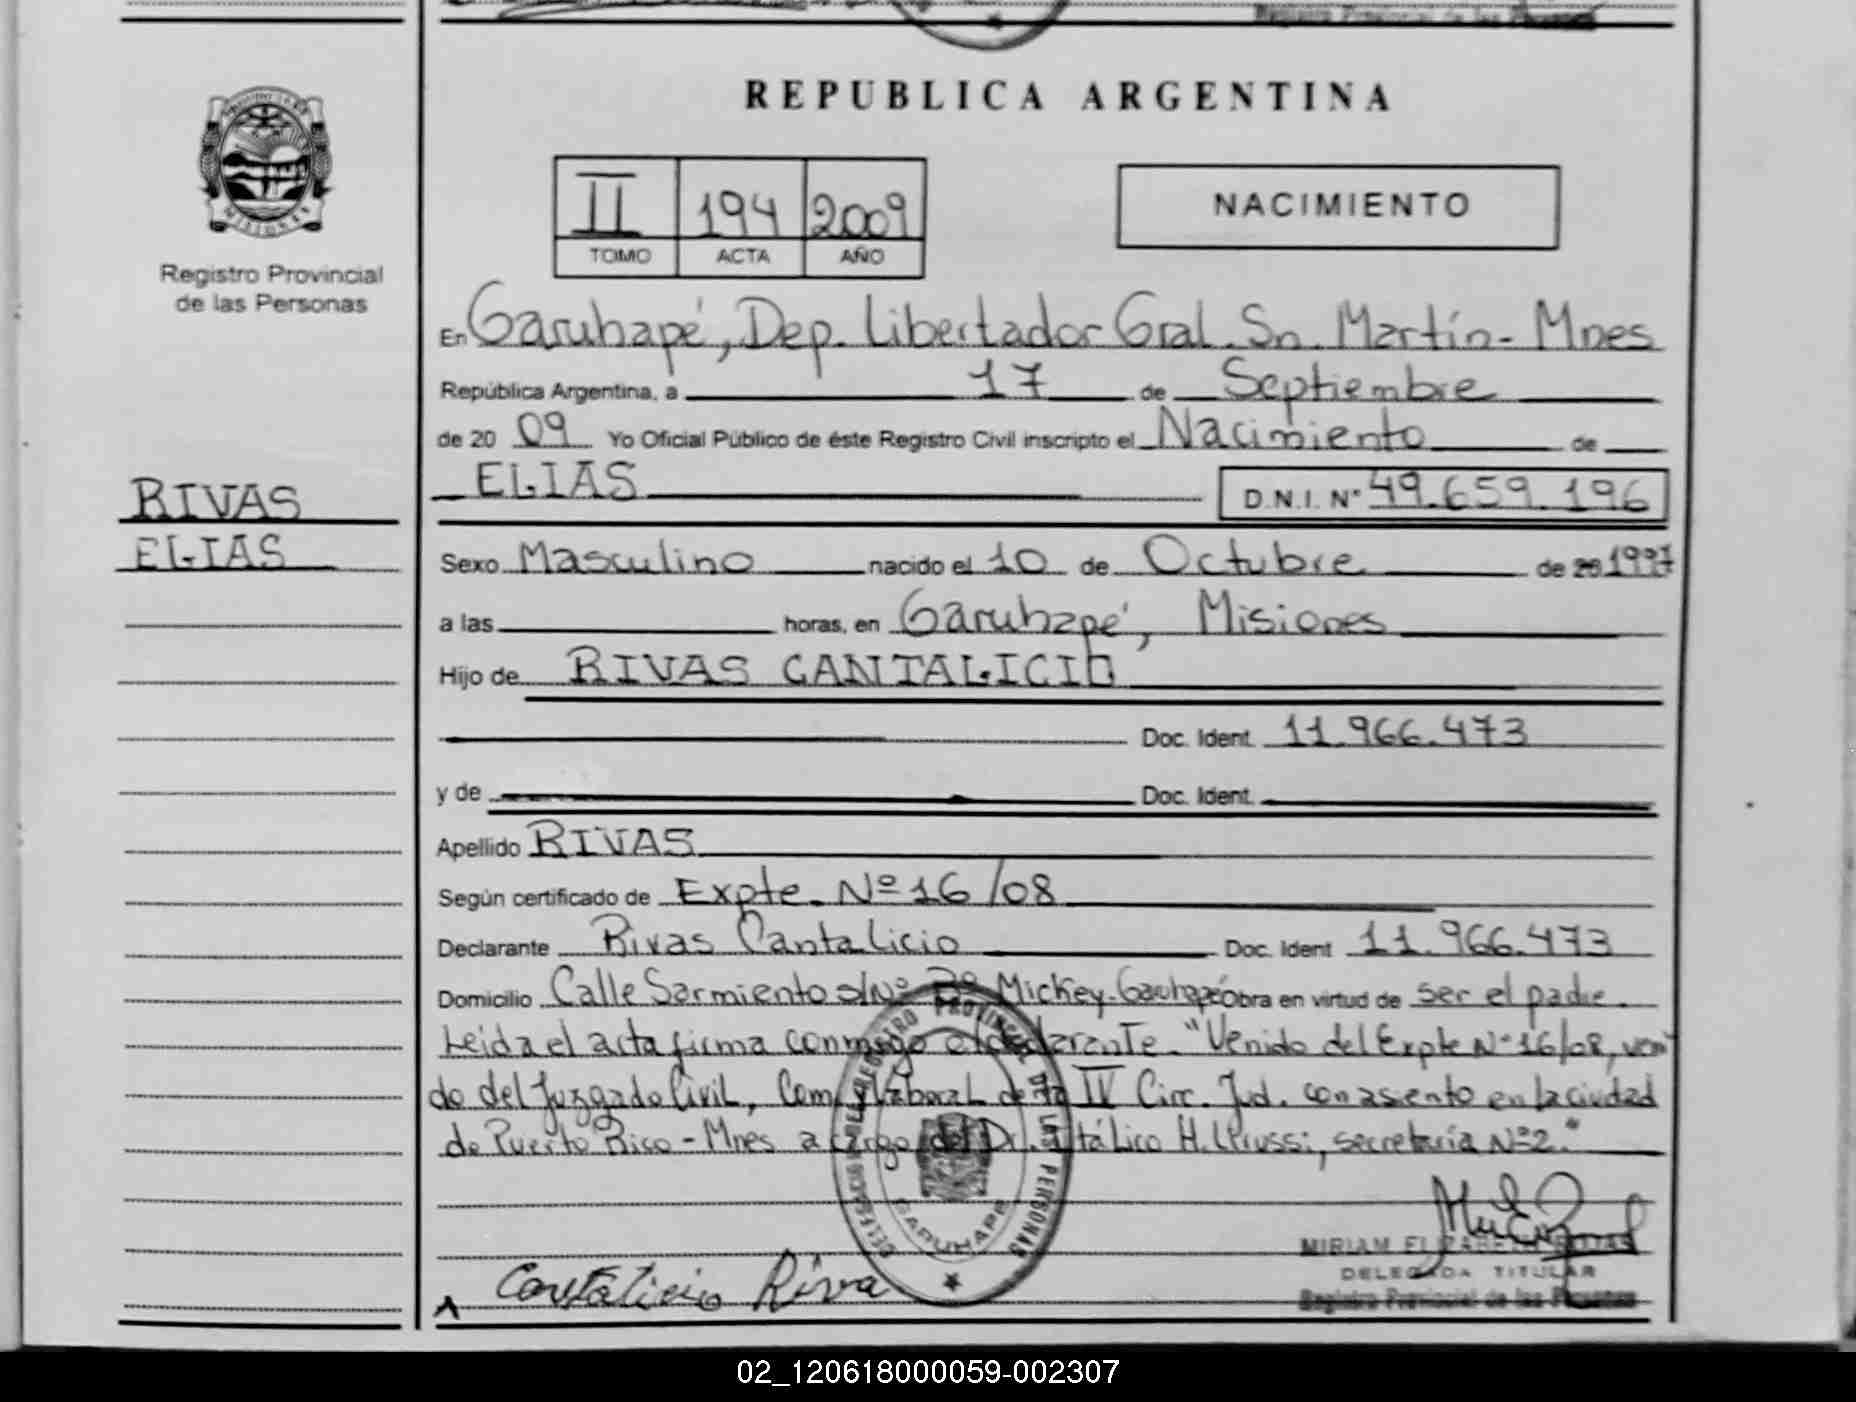 REPUBLICA ARGENTINA
NACIMIENTO
II 194 2009
TOMO ACTA AÑO
Registro Provincial
de las Personas
En Garuhapé, Dep. Libertador Gral. Sn. Martín - Mnes
República Argentina, a 17 de Septiembre
de 20 09 Yo Oficial Público de éste Registro Civil inscripto el Nacimiento de
ELIAS D.N.I. N° 49.659.196
RIVAS
ELIAS
Sexo Masculino nacido el 10 de Octubre de 20 1997
a las horas, en Garuhapé, Misiones
Hijo de RIVAS CANTALICIO
Doc. Ident. 11.966.473
y de Doc. Ident.
Apellido RIVAS
Según certificado de Expte. Nº 16/08
Declarante Rivas Cantalicio Doc. Ident 11.966.473
Domicilio Calle Sarmiento s/Nº Bº Mickey. Garuhapé obra en virtud de ser el padre.
Leida el acta firma conmigo el declarante. "Venido del Expte N° 16/08, veni
do del Juzgado Civil, Com. y Laboral de la IV Circ. Jud. con asiento en la ciudad
de Puerto Rico - Mnes a cargo del Dr. Itálico H. secretaría Nº2."
DELEGACION REGISTRO PROVINCIAL DE LAS PERSONAS
GARUHAPE
MIRIAM ELIZABETH ROJAS
DELEGADA TITULAR
Registro Provincial de las Personas
Cantalicio Riva
02_120618000059-002307